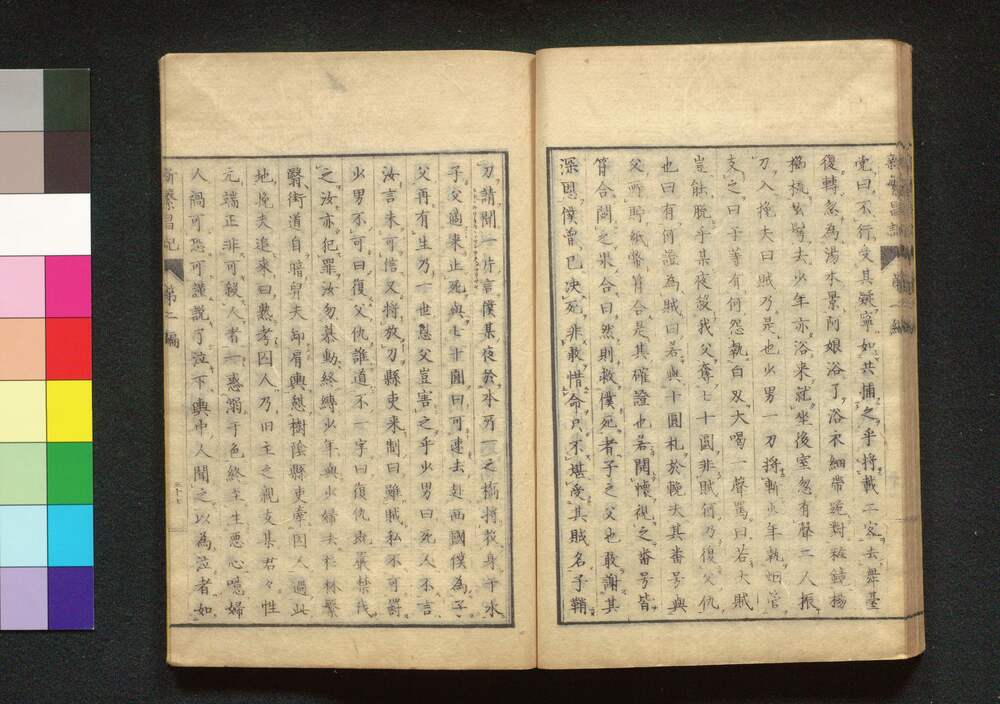 覚曰不行、受其疑寧如共捕之乎将載二客去舞臺
復轉忽為湯本景阿娘浴了浴衣細帶絶對粧鏡揚
去少年亦浴来就坐後室忽有聲二人振
刀入挽夫曰賊乃是也少男一刀将斬少年執烟管
支之曰子等有何怨執白双大喝一聲罵曰若大賊
豈能脱乎某夜殺我父奪七十圓非賊何乃復父仇
也曰有何證為賊曰若與十圓札於輓夫其番号與
父所貯紙幣算合是其確證也若開懐視之番号皆
算合問之果合曰然則救僕死者子之父也敢謝其
深恩僕曾已决死非敢惜命只不堪受其賊名子鞘
刀請聞一片言僕某夜於本所一之橋将投身于水
子父過来止死與七十圓曰可速去赴西國僕為子
父再有生乃一世慈父豈害之乎少男曰死人不言
汝言未可信又将放刀縣吏来制曰雖賊私不可罰
少男不可曰復父仇誰道不一字曰復仇嚴禁我
之汝亦犯罪汝勿暴動終縛少年與少婦去杉林繋
翳街道自暗舁夫卸肩輿憩樹陰縣吏牽囚人過此
地挽夫追来曰熟考囚人乃旧主之親友某君々性
元端正非可殺人者一惑溺于色終至生悪心噫婦
人禍可恐可謹説了泣下輿中人聞之以為泣者如
新繁昌記
第二編
三十七